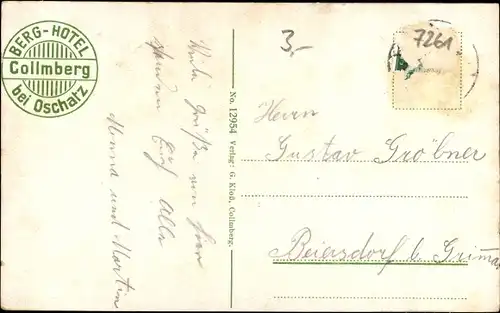 BERG-HOTEL
Collmberg
bei Oschatz
Viele Grüße von hier
senden Euch Alle
Monna und Martin
No. 12954 Verlag: G. Kloß, Collmberg.
3,-
7261
Herrn
Gustav Gröbner
Beiersdorf b. Grimma